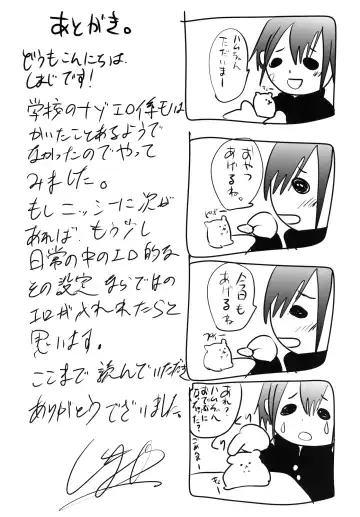 あとがき。
どうもこんにちは、
しおじです!
学校のナゾエロ係もは
かいたことあるようで
なかったのでやって
みました。
もしニッシーに次が
あれば、もう少し
日常の中のエロ的な
その設定ならではの
エロが入れれたらと
思います。
ここまで読んでいただき
ありがとうございました。
ハムちゃん
ただいまー
おやつ
あげるね。
今日も
あげるね
あれ?
ハムちゃん